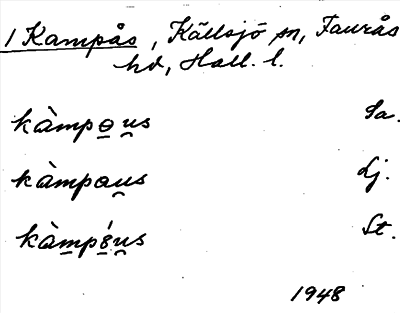 1 Kampås, Källsjö sn, Faurås
hd, Hall. l.
kàmpo̲u̯s Sa.
kàmpau̯s Lj.
kàm̲pɞ̲́u̯s St.
1948